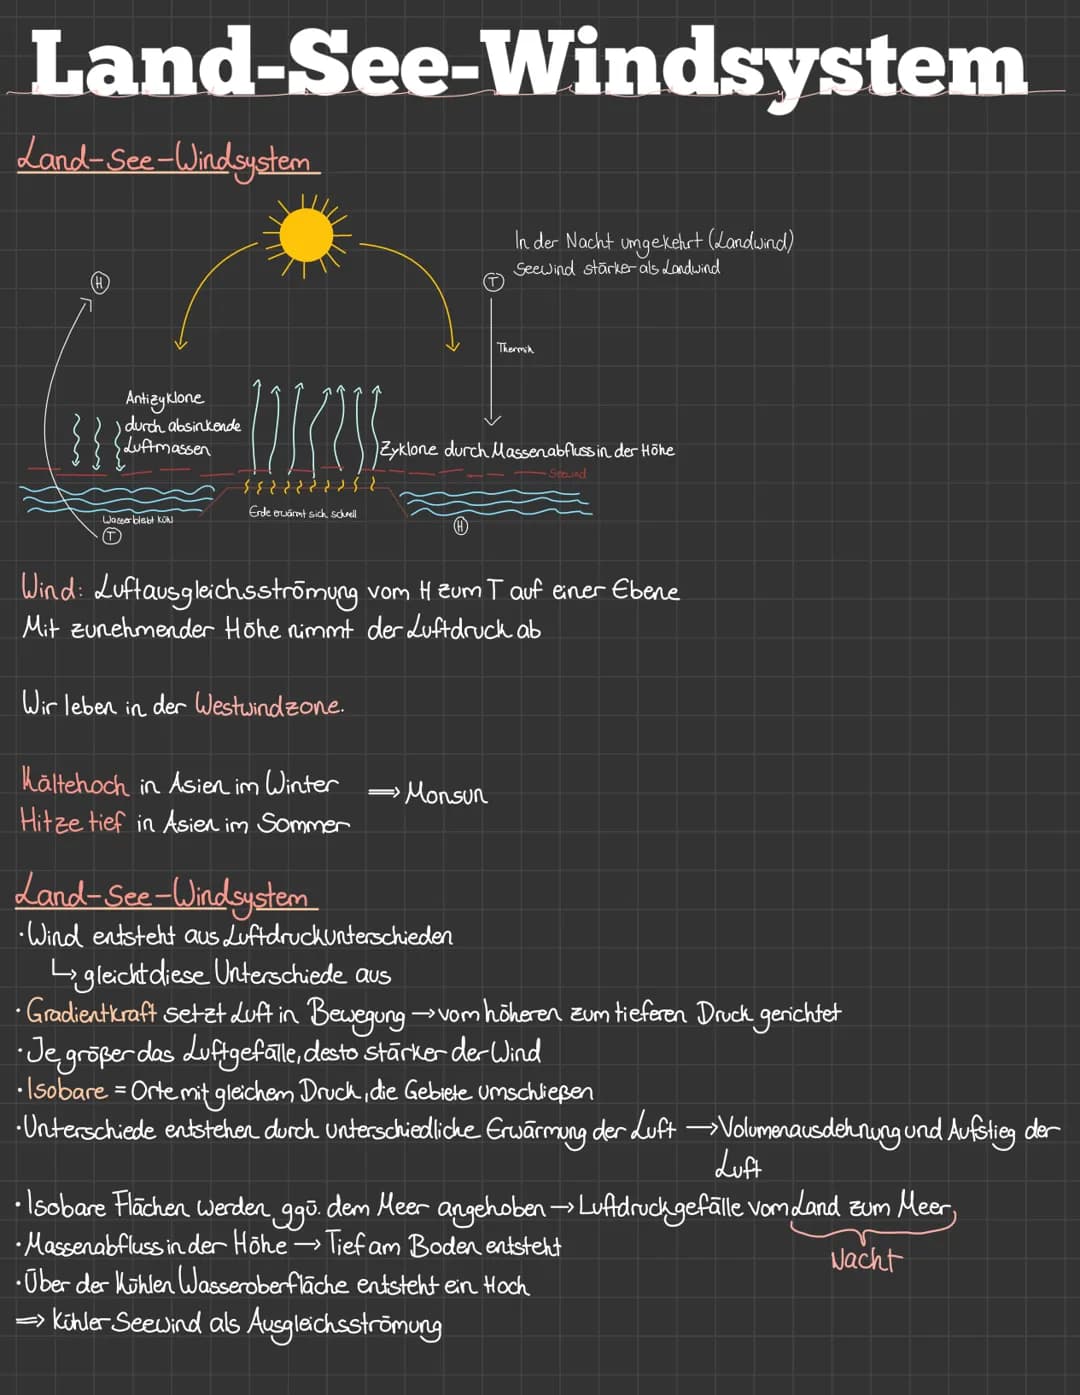 Land-See-Windsystem
Land-See-Windsystem
In der Nacht umgekehrt (Landwind)
Seewind stärker als Landwind
H
T
Thermik
Antizyklone
durch absinkende
Luftmassen
Zyklone durch Massenabfluss in der Höhe
Seewind
Wasser bleibt kühl
Erde erwärmt sich schnell
T
H
Wind: Luftausgleichsströmung vom H zum T auf einer Ebene
Mit zunehmender Höhe nimmt der Luftdruck ab
Wir leben in der Westwindzone.
Kältehoch in Asien im Winter
⇒ Monsun
Hitzetief in Asien im Sommer
Land-See-Windsystem
· Wind entsteht aus Luftdruckunterschieden
↳ gleicht diese Unterschiede aus
· Gradientkraft setzt Luft in Bewegung → vom höheren zum tieferen Druck gerichtet
· Je größer das Luftgefälle, desto stärker der Wind
· Isobare = Orte mit gleichem Druck, die Gebiete umschließen
· Unterschiede entstehen durch unterschiedliche Erwärmung der Luft → Volumenausdehnung und Aufstieg der
Luft
· Isobare Flächen werden ggü. dem Meer angehoben → Luftdruckgefälle vom Land zum Meer
· Massenabfluss in der Höhe → Tief am Boden entsteht
Nacht
· Über der kühlen Wasseroberfläche entsteht ein Hoch
⇒ kühler Seewind als Ausgleichsströmung